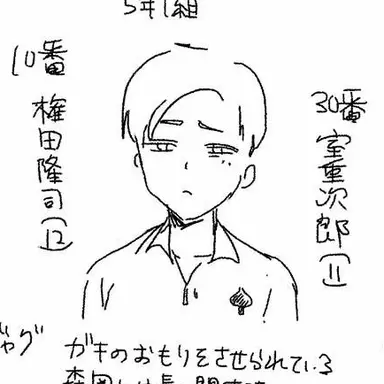 5年1組
10番
権田隆司(12
30番
室重次郎(11
ガキのおもりをさせられている